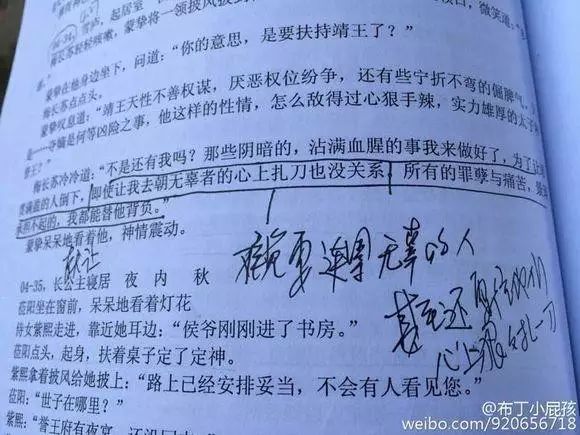 蒙挚将一领披风披
微笑道：
梅长苏轻轻咳嗽，
蒙挚在他身边坐下，问道：“你的意思，是要扶持靖王了？”
梅长苏点点头。
蒙挚叹息道：“靖王天性不善权谋，厌恶权位纷争，还有些宁折不弯的倔脾气。
是——夺嫡是何等凶险之事，他这样的性情，怎么敌得过心狠手辣，实力雄厚的太子
誉王？”
梅长苏冷冷道：“不是还有我吗？那些阴暗的，沾满血腥的事我来做好了，为了让
恶贯满盈的人倒下，即便让我去朝无辜者的心上扎刀也没关系，所有的罪孽与痛苦，
我都能替他背负。”
蒙挚呆呆地看着他，神情震动。
无辜的人
甚至还要在他们
心上
一刀
04-35，长公主寝居 夜 内 秋
莅阳坐在窗前，呆呆地看着灯花
侍女紫熙走进，靠近她耳边：“侯爷刚刚进了书房。”
莅阳点头，起身，扶着桌子定了定神。
紫熙拿着披风给她披上：“路上已经安排妥当，不会有人看见您。”
莅阳：“世子在哪里？”
紫熙：“誉王府有夜宴，还没回
@布丁小屁孩
weibo.com/920656718